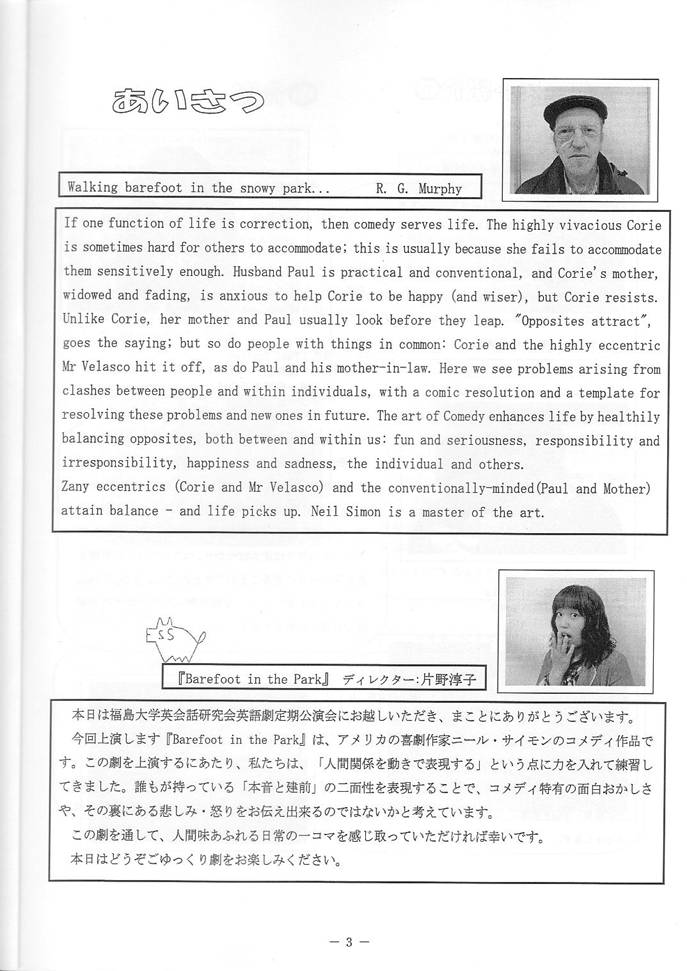 あいさつ
Walking barefoot in the snowy park... R. G. Murphy
If one function of life is correction, then comedy serves life. The highly vivacious Corie
is sometimes hard for others to accommodate; this is usually because she fails to accommodate
them sensitively enough. Husband Paul is practical and conventional, and Corie's mother,
widowed and fading, is anxious to help Corie to be happy (and wiser), but Corie resists.
Unlike Corie, her mother and Paul usually look before they leap. "Opposites attract",
goes the saying; but so do people with things in common: Corie and the highly eccentric
Mr Velasco hit it off, as do Paul and his mother-in-law. Here we see problems arising from
clashes between people and within individuals, with a comic resolution and a template for
resolving these problems and new ones in future. The art of Comedy enhances life by healthily
balancing opposites, both between and within us: fun and seriousness, responsibility and
irresponsibility, happiness and sadness, the individual and others.
Zany eccentrics (Corie and Mr Velasco) and the conventionally-minded(Paul and Mother)
attain balance - and life picks up. Neil Simon is a master of the art.
ESS
『Barefoot in the Park』 ディレクター:片野淳子
本日は福島大学英会話研究会英語劇定期公演会にお越しいただき、まことにありがとうございます。
今回上演します『Barefoot in the Park』は、アメリカの喜劇作家ニール・サイモンのコメディ作品で
す。この劇を上演するにあたり、私たちは、「人間関係を動きで表現する」という点に力を入れて練習し
てきました。誰もが持っている「本音と建前」の二面性を表現することで、コメディ特有の面白おかしさ
や、その裏にある悲しみ・怒りをお伝え出来るのではないかと考えています。
この劇を通して、人間味あふれる日常の一コマを感じ取っていただければ幸いです。
本日はどうぞごゆっくり劇をお楽しみください。
― 3 ―